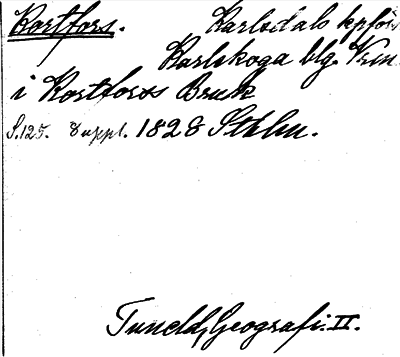 Kortfors. Karlsdals kpförs
Karlskoga blg. Vrm
i Kortforss Bruk
S.125. 8 uppl. 1828 Sthlm.
Tuneld, Geografi. II.